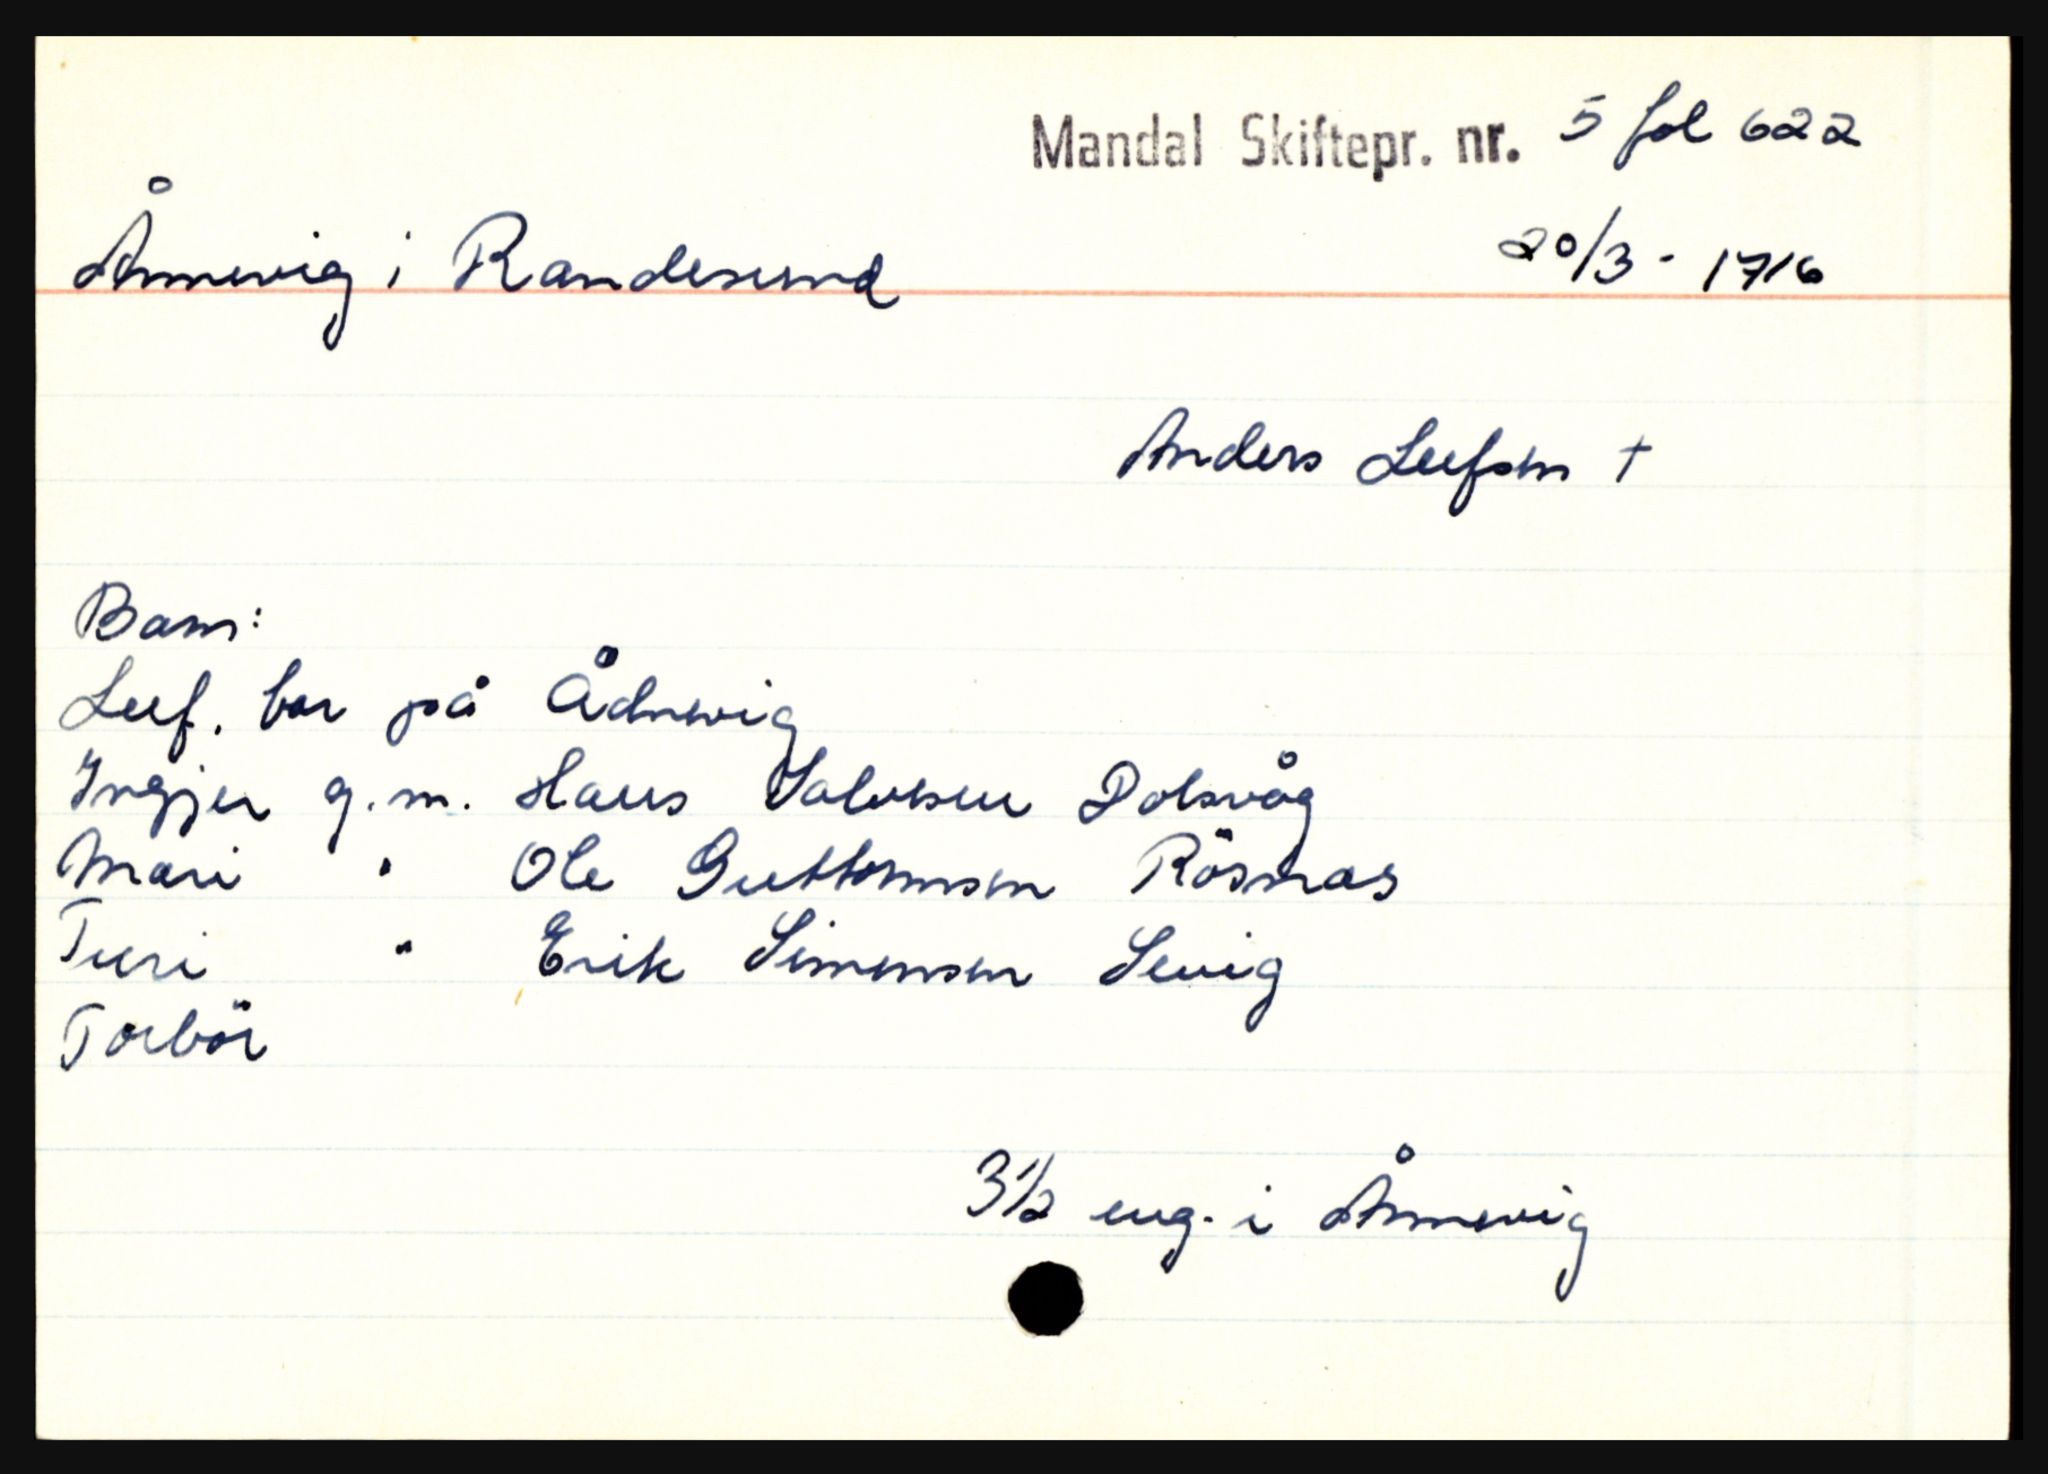 Mandal Skiftepr. nr. 5 fol 622
Ånnevig i Randesund 20/3 - 1716
Anders Leefsen †
Barn:
Leef. bor på Ådnevig
Ingjer g.m. Hans Salvesen Dolsvåg
Mari " Ole Guttormsen Rösnas
Turi " Erik Simonsen Sevig
Torbör
3 1/2 eng. i Ånnevig